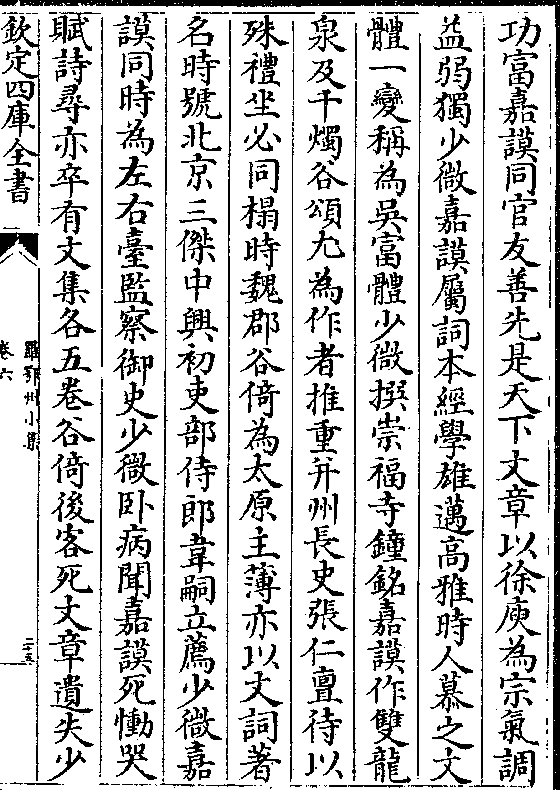 功富嘉謨同官友善先是天下文章以徐庾為宗氣調
益弱獨少微嘉謨屬詞本經學雄邁高雅時人慕之文
體一變稱為吳富體少微撰崇福寺鐘銘嘉謨作雙龍
泉及千燭谷頌尤為作者推重并州長史張仁亶待以
殊禮坐必同榻時魏郡谷倚為太原主簿亦以文詞著
名時號北京三傑中興初吏部侍郎韋嗣立薦少微嘉
謨同時為左右臺監察御史少微卧病聞嘉謨死慟哭
賦詩尋亦卒有文集各五卷谷倚後客死文章遺失少
欽定四庫全書
羅鄂州小集
卷六
二十五